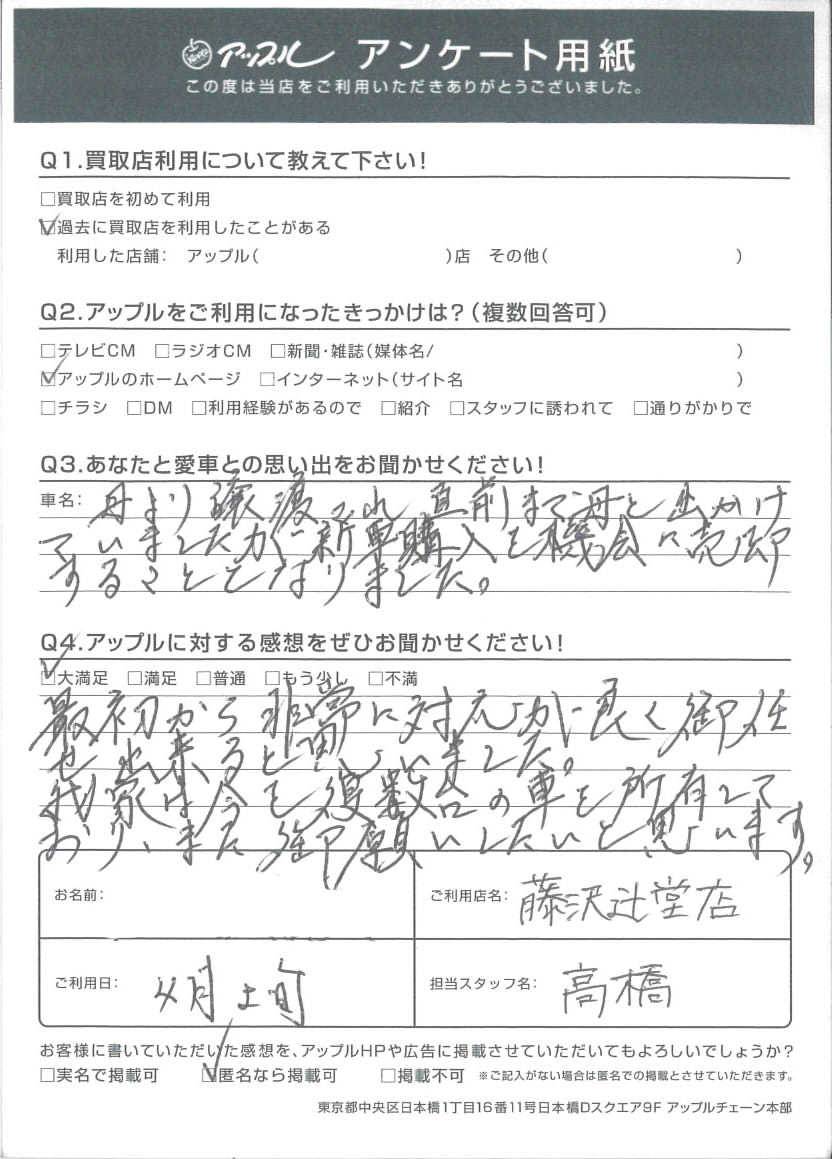 アップル アンケート用紙
この度は当店をご利用いただきありがとうございました。
Q1.買取店利用について教えて下さい!
□買取店を初めて利用
☑過去に買取店を利用したことがある
利用した店舗: アップル( )店 その他( )
Q2.アップルをご利用になったきっかけは?(複数回答可)
□テレビCM □ラジオCM □新聞・雑誌(媒体名/ )
☑アップルのホームページ □インターネット(サイト名 )
□チラシ □DM □利用経験があるので □紹介 □スタッフに誘われて □通りがかりで
Q3.あなたと愛車との思い出をお聞かせください!
車名: 母より譲渡され 直前まで母と出かけ
ていましたが新車購入を機会に売却
することとなりました。
Q4.アップルに対する感想をぜひお聞かせください!
☑大満足 □満足 □普通 □もう少し □不満
最初から非常に対応が良く御任
せ出来ると思いました。
我家は今も複数台の車を所有して
おり、また御願いしたいと思います。
お名前:
ご利用店名: 藤沢辻堂店
ご利用日: 4月上旬
担当スタッフ名: 高橋
お客様に書いていただいた感想を、アップルHPや広告に掲載させていただいてもよろしいでしょうか?
□実名で掲載可 ☑匿名なら掲載可 □掲載不可 ※ご記入がない場合は匿名での掲載とさせていただきます。
東京都中央区日本橋1丁目16番11号日本橋Dスクエア9F アップルチェーン本部